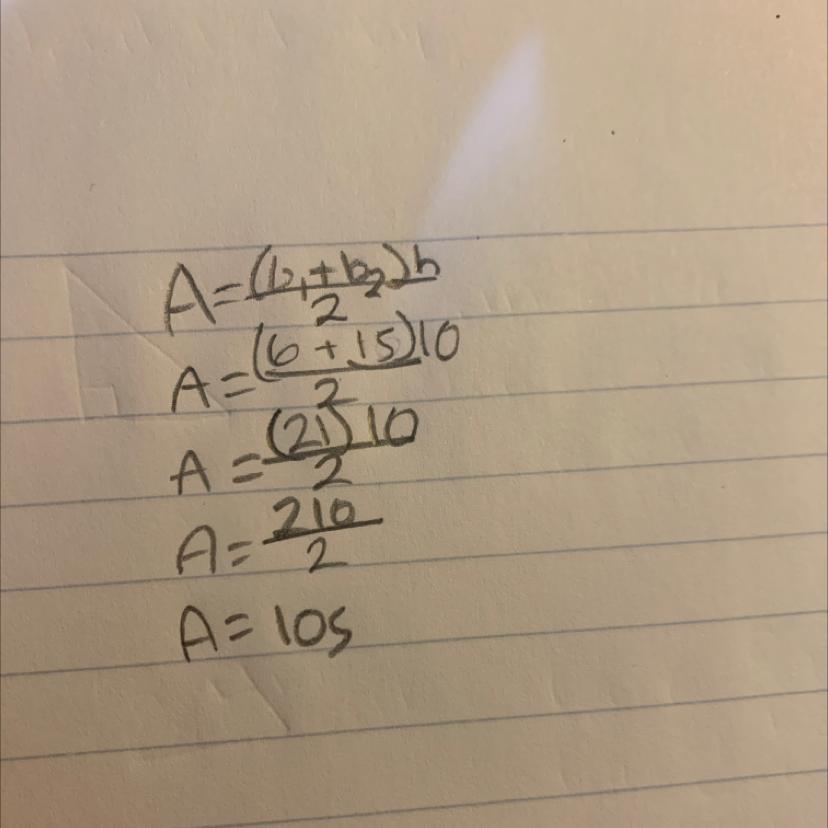 A=(b₁+b₂)h/2
A=(6+15)10/2
A=(21)10/2
A=210/2
A=105